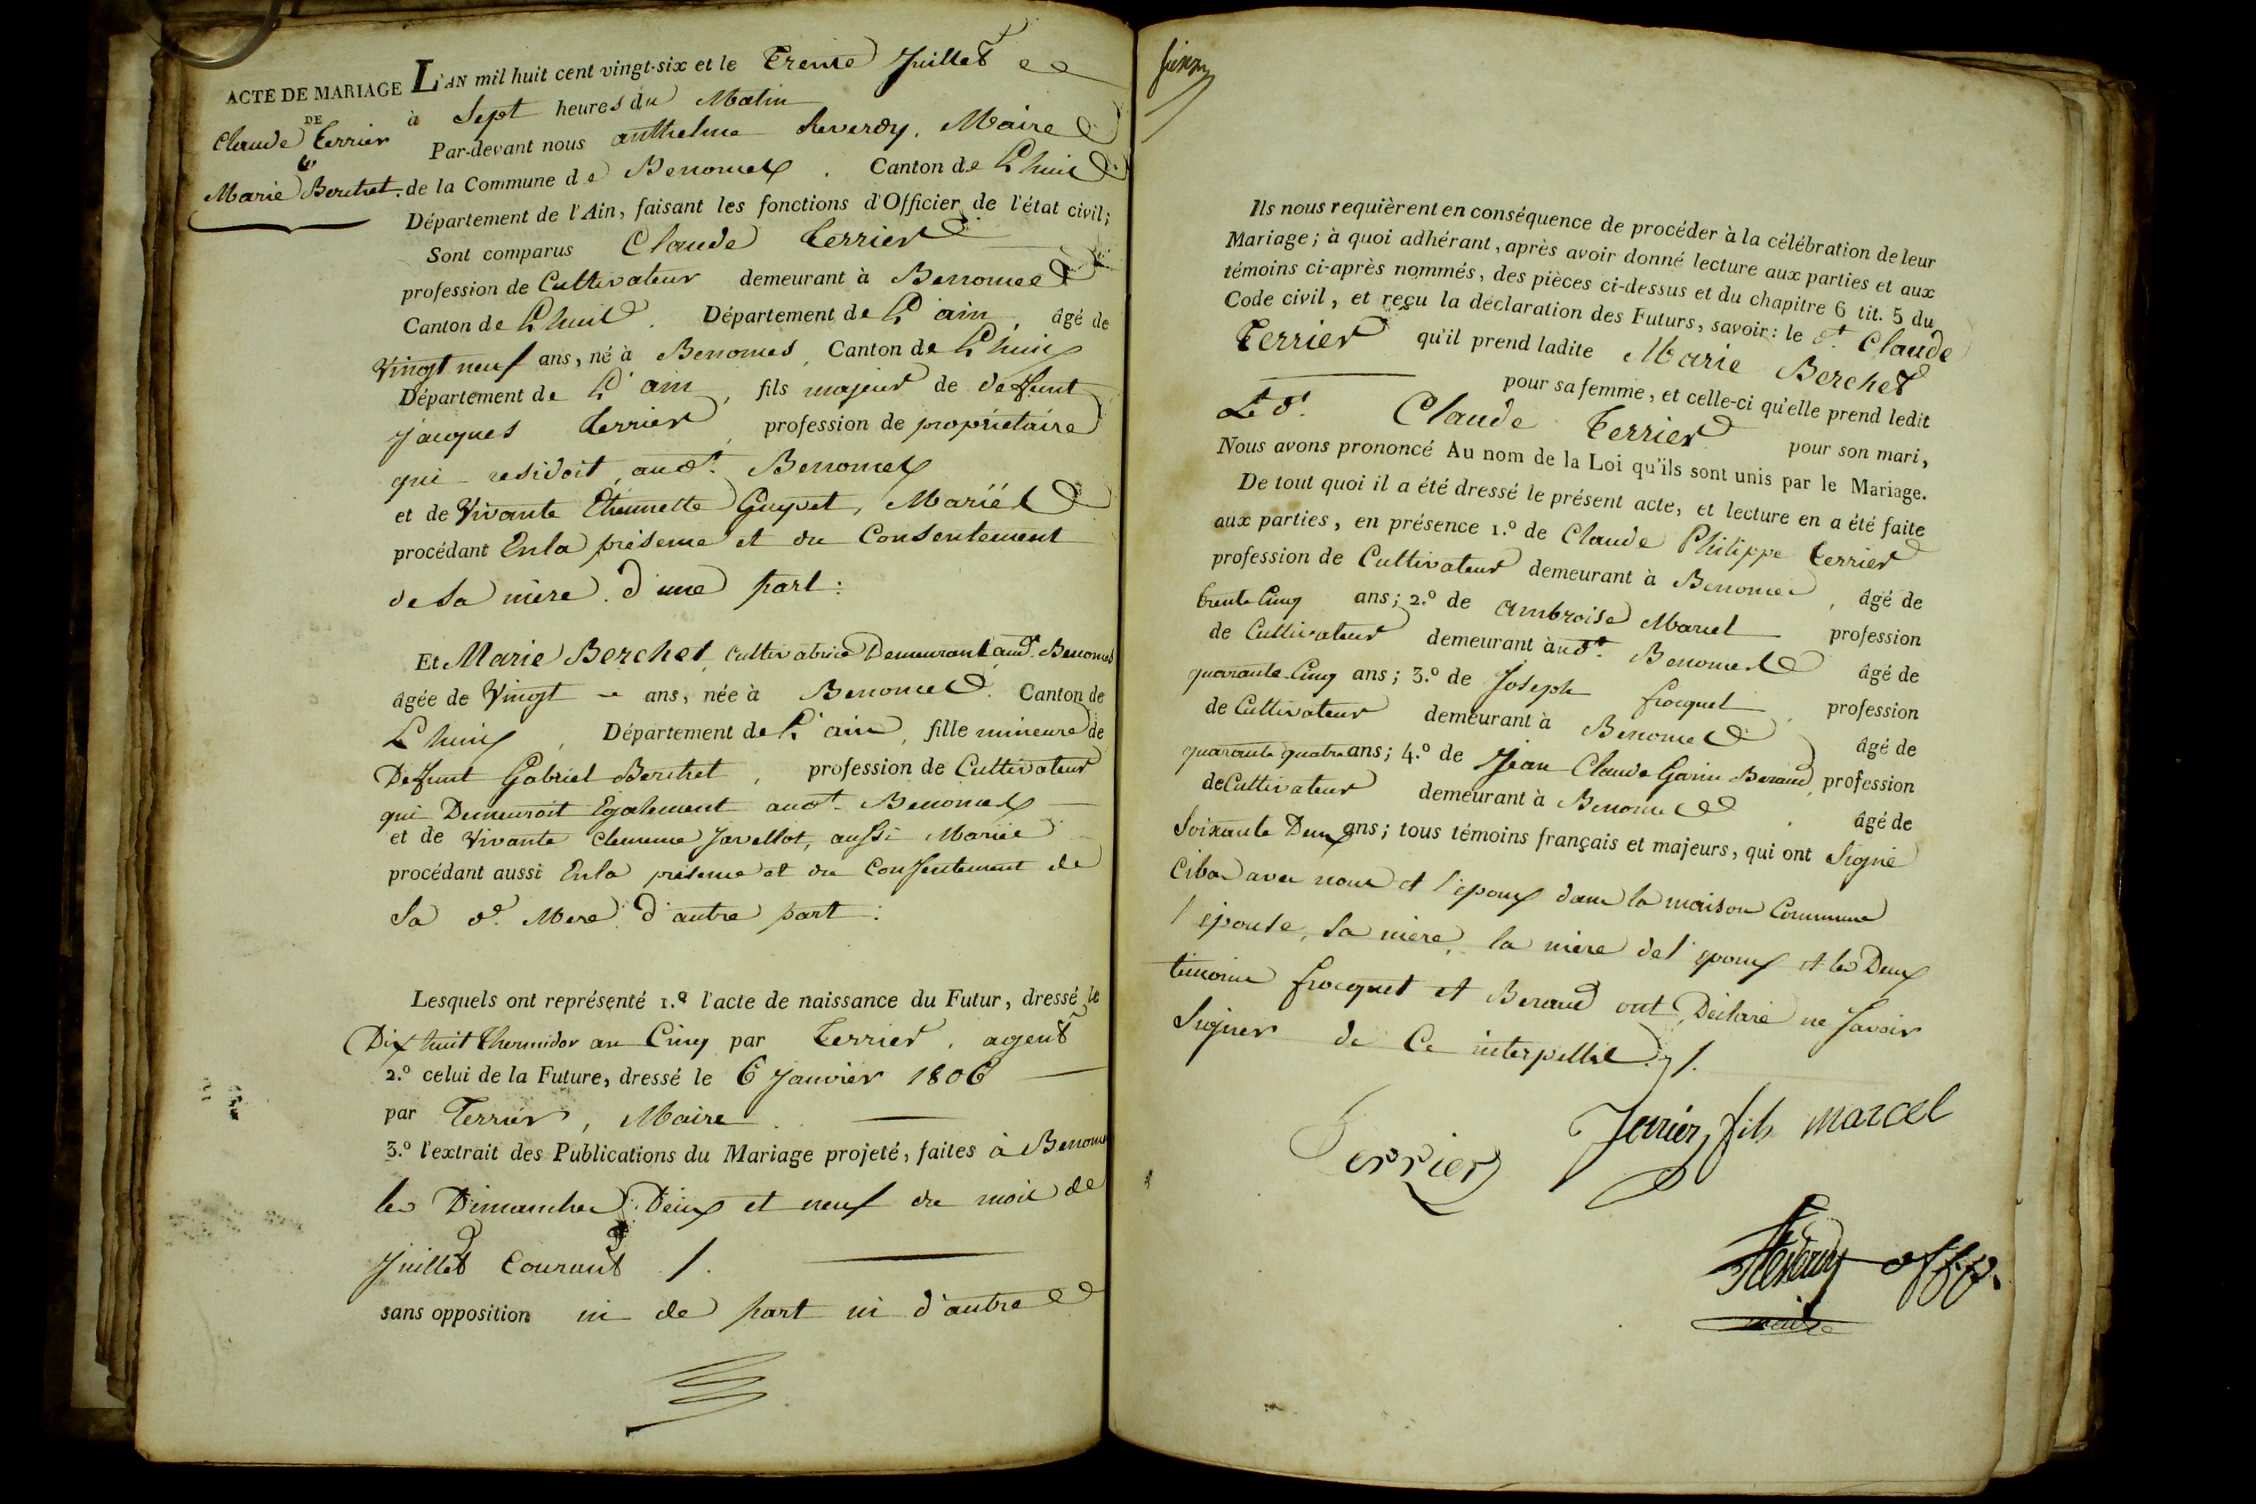 ACTE DE MARIAGE
DE
Claude Terrier
et
Marie Berchet.
L'AN mil huit cent vingt-six et le Trente Juillet
à Sept heures du Matin
Par-devant nous anthelme Reverdy, Maire
de la Commune de Benonces. Canton de Lhuis
Département de l'Ain, faisant les fonctions d'Officier de l'état civil;
Sont comparus Claude Terrier
profession de Cultivateur demeurant à Benonces
Canton de Lhuis. Département de L'ain, âgé de
Vingt neuf ans, né à Benonces, Canton de Lhuis
Département de L'ain, fils majeur de deffunt
Jacques Terrier, profession de propriétaire
qui residoit audt. Benonces
et de Vivante Etiennette Guypet, Mariés
procédant En la présence et du Consentement
de Sa mère. d'une part:
Et Marie Berchet, Cultivatrice Demeurant aud. Benonces
âgée de Vingt ans, née à Benonces. Canton de
Lhuis, Département de L'ain, fille mineure de
Deffunt Gabriel Berchet, profession de Cultivateur
qui Demeuroit Egalement audt. Benonces
et de Vivante Clemence Javellot, aussi Mariée
procédant aussi En la présence et du Consentement de
Sa de. Mere. d'autre part:
Lesquels ont représenté 1.º l'acte de naissance du Futur, dressé le
Dix huit Thermidor an Cinq par Terrier, agent
2.º celui de la Future, dressé le 6 Janvier 1806
par Terrier, Maire
3.º l'extrait des Publications du Mariage projeté, faites à Benonces
les Dimanches Deux et neuf du mois de
Juillet Courant /.
sans opposition ni de part ni d'autre
Ils nous requièrent en conséquence de procéder à la célébration de leur
Mariage; à quoi adhérant, après avoir donné lecture aux parties et aux
témoins ci-après nommés, des pièces ci-dessus et du chapitre 6 tit. 5 du
Code civil, et reçu la déclaration des Futurs, savoir: le dt. Claude
Terrier qu'il prend ladite Marie Berchet
pour sa femme, et celle-ci qu'elle prend ledit
Ledt. Claude Terrier pour son mari,
Nous avons prononcé Au nom de la Loi qu'ils sont unis par le Mariage.
De tout quoi il a été dressé le présent acte, et lecture en a été faite
aux parties, en présence 1.º de Claude Philippe Terrier
profession de Cultivateur demeurant à Benonces, âgé de
trente Cinq ans; 2.º de ambroise Marcel profession
de Cultivateur demeurant à audt. Benonces âgé de
quarante-Cinq ans; 3.º de Joseph frocquet, profession
de Cultivateur demeurant à Benonces âgé de
quarante quatre ans; 4.º de Jean Claude Garin Beraud, profession
de Cultivateur demeurant à Benonces. âgé de
Soixante Deux ans; tous témoins français et majeurs, qui ont Signé
Cibas avec nous et l'époux dans la maison Commune
l'épouse, Sa mère, la mère de l'époux et les Deux
témoins frocquet et Beraud ont Déclaré ne Savoir
Signer de Ce interpellés /.
Terrier
Terrier fils
Marcel
Reverdy
maire